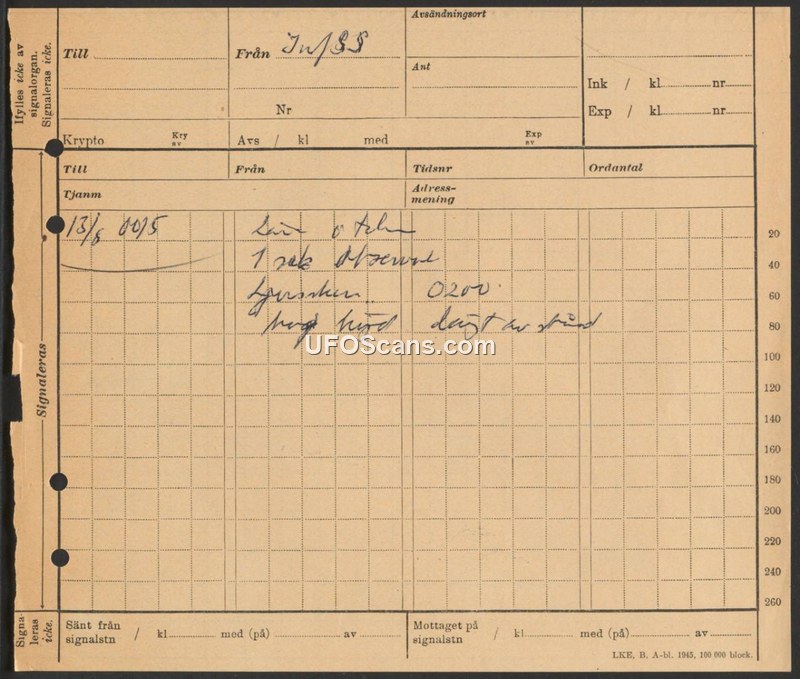 Ifylles icke av
signalorgan.
Signaleras icke.
Avsändningsort
Till Från
Ant
Ink / kl nr
Nr
Exp / kl nr
Krypto Kry av Avs / kl med Exp av
Till Från Tidsnr Ordantal
Tjänm Adress-
mening
13/8 0015
1 sek
0200
högt höjd långt avstånd
UFOScans.com
20
40
60
80
100
120
140
160
180
200
220
240
260
Signaleras
Signa-
leras
icke.
Sänt från
signalstn / kl med (på) av
Mottaget på
signalstn / kl med (på) av
LKE, B, A-bl. 1945, 100 000 block.